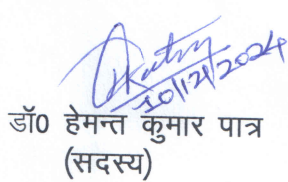 10/12/2024
डॉ0 हेमन्त कुमार पात्र
(सदस्य)